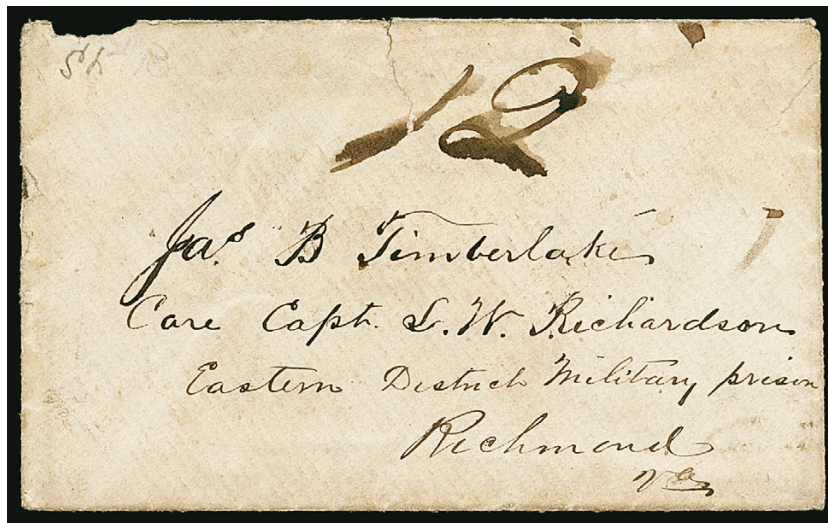 12
Jas. B Timberlake
Care Capt. L. W. Richardson
Eastern District Military prison
Richmond
Va